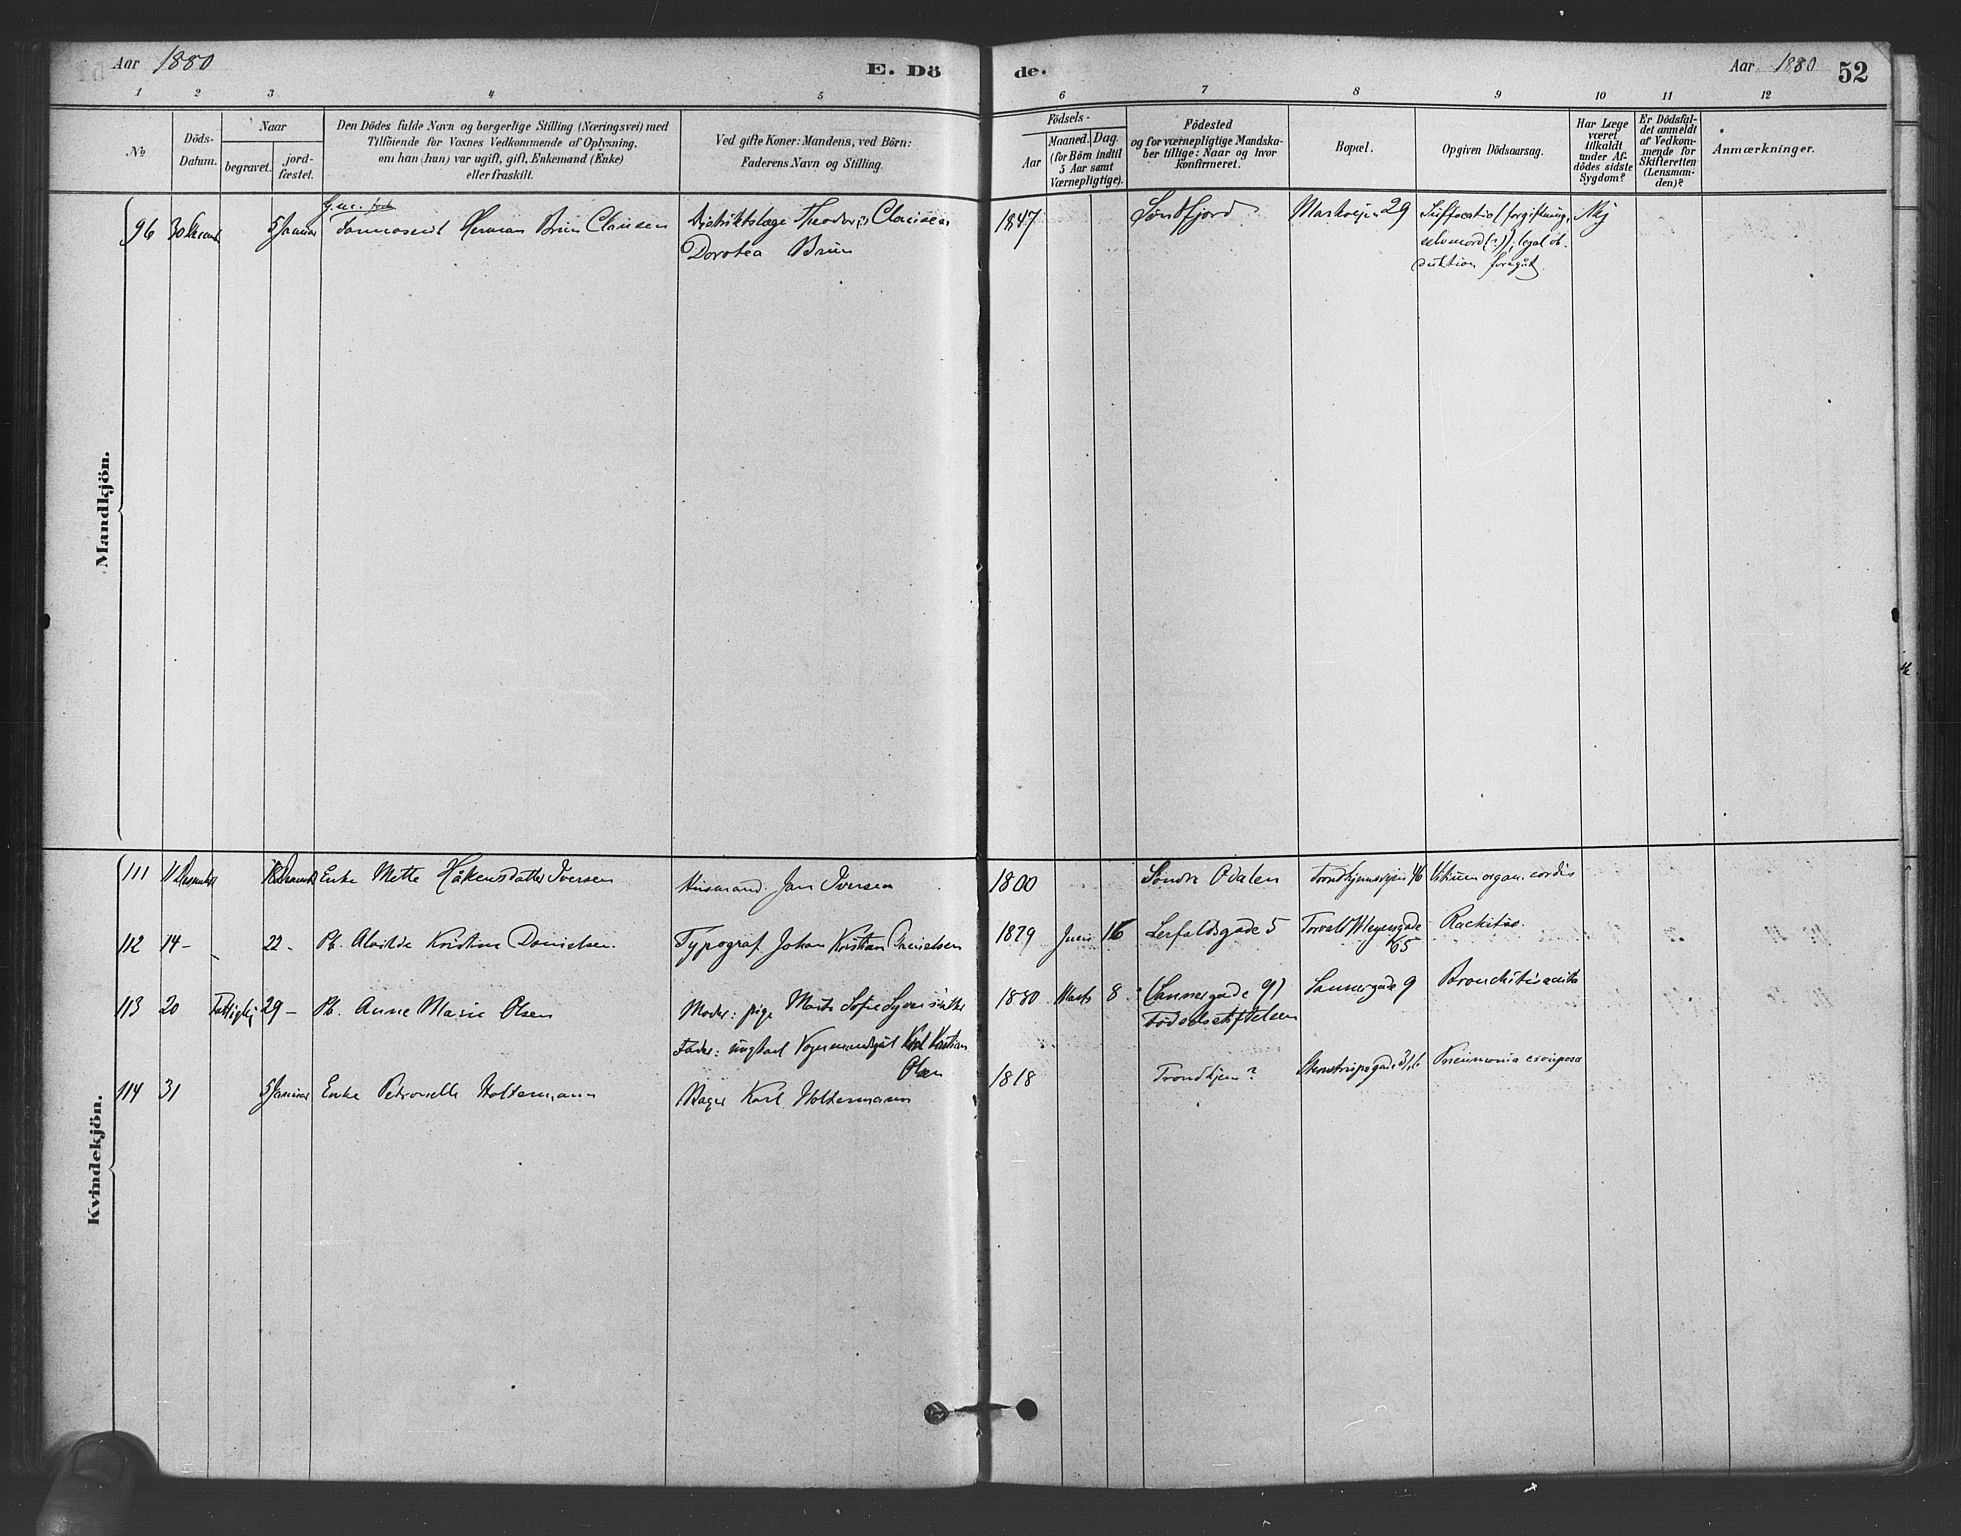 Aar 1880
E. Dö
de.
Aar 1880
52
1 2 3 4 5 6 7 8 9 10 11 12
No
Döds-
Datum.
Naar
begravet.
jord-
fæstet.
Den Dödes fulde Navn og borgerlige Stilling (Næringsvei) med
Tilföiende for Voxnes Vedkommende af Oplysning,
om han (hun) var ugift, gift, Enkemand (Enke)
eller fraskilt.
Ved gifte Koner: Mandens, ved Börn:
Faderens Navn og Stilling.
Födsels-
Aar
Maaned.
Dag.
(for Börn indtil
5 Aar samt
Værnepligtige).
Födested
og for værnepligtige Mandska-
ber tillige: Naar og hvor
konfirmeret.
Bopæl.
Opgiven Dödsaarsag.
Har Læge
været
tilkaldt
under Af-
dödes sidste
Sygdom?
Er Dödsfal-
det anmeldt
af Vedkom-
mende for
Skifteretten
(Lensman-
den)?
Anmærkninger.
Mandkjön.
96 5 Januar Herman Brun Clausen Distriktslæge Theodor Clausen 1847 Söndfjord Markvejen 29 forgiftning, Nej
Dorotea Brun
selvmord (?)); legal ob-
duktion foregåt.
Kvindekjön.
111 11 Desember Enke Mette Håkensdatter Iversen Husmand Jan Iversen 1800 Söndre Odalen Trondhjemsvejen 46 Vitium organ. cordis
112 14 - 22 - Pb. Alvilde Kristine Danielsen Typograf Johan Kristian Danielsen 1879 Juni 16 Lerfaldsgade 5 Torvald Meyersgade
65
Rachitis
113 20 29 - Pb. Anne Marie Olsen Moder: pige Sofie 1880 Marts 8 (Sannergade 9) Sannergade 9 Bronchitis acuta
Födselsstiftelsen
Fader: ungkarl Kristian
Olsen
114 31 5 Januar Enke Petronelle Holtermann Bager Karl Holtermann 1818 Trondhjem? Pneumonia crouposa